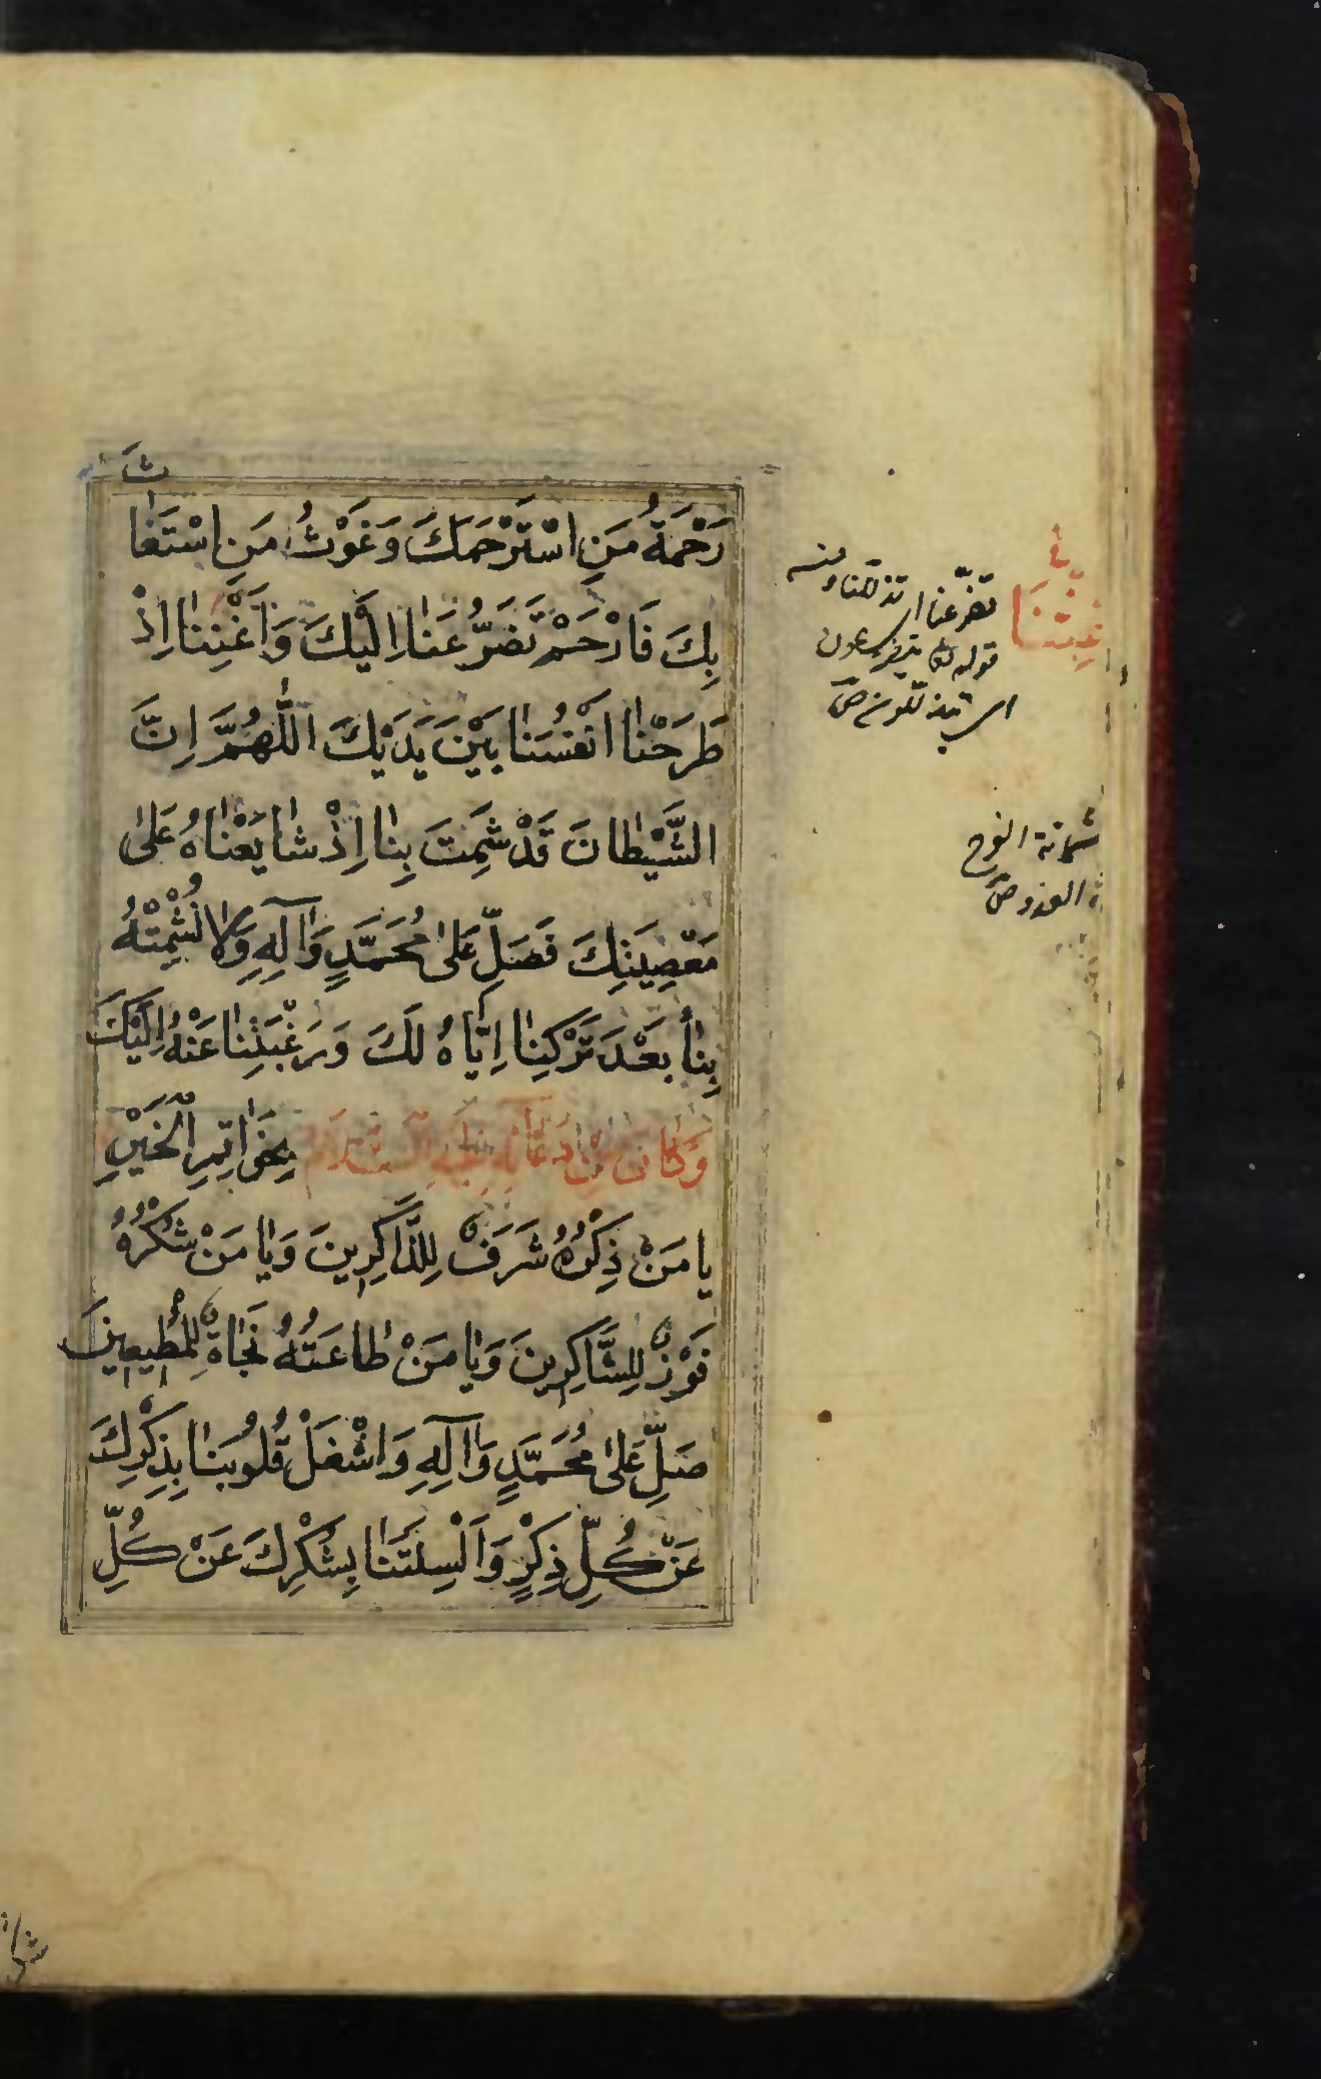 رَحْمَةُ مَنِ اسْتَرْحَمَكَ وَغَوْثُ مَنِ اسْتَغَاثَ
بِكَ فَارْحَمْ تَضَرُّعَنَا اِلَيْكَ وَاَغْنِنَا اِذْ
طَرَحْنَا اَنْفُسَنَا بَيْنَ يَدَيْكَ اَللّٰهُمَّ اِنَّ
الشَّيْطَانَ قَدْ شَمِتَ بِنَا اِذْ شَايَعْنَاهُ عَلٰى
مَعْصِيَتِكَ فَصَلِّ عَلٰى مُحَمَّدٍ وَآلِهِ وَلَا تُشْمِتْهُ
بِنَا بَعْدَ تَرْكِنَا اِيَّاهُ لَكَ وَرَغْبَتِنَا عَنْهُ اِلَيْكَ
وَكَانَ مِنْ دُعَائِهِ عَلَيْهِ السَّلَامُ بِخَوَاتِمِ الْخَيْرِ
يَا مَنْ ذِكْرُهُ شَرَفٌ لِلذَّاكِرِينَ وَيَا مَنْ شُكْرُهُ
فَوْزٌ لِلشَّاكِرِينَ وَيَا مَنْ طَاعَتُهُ نَجَاةٌ لِلْمُطِيعِينَ
صَلِّ عَلٰى مُحَمَّدٍ وَآلِهِ وَاشْغَلْ قُلُوبَنَا بِذِكْرِكَ
عَنْ كُلِّ ذِكْرٍ وَاَلْسِنَتَنَا بِشُكْرِكَ عَنْ كُلِّ
تضرّعنا ای تذللنا ومنه
قوله تع يتضرعون
ای يتذللون ص
شماتة الفرح
العدو ص